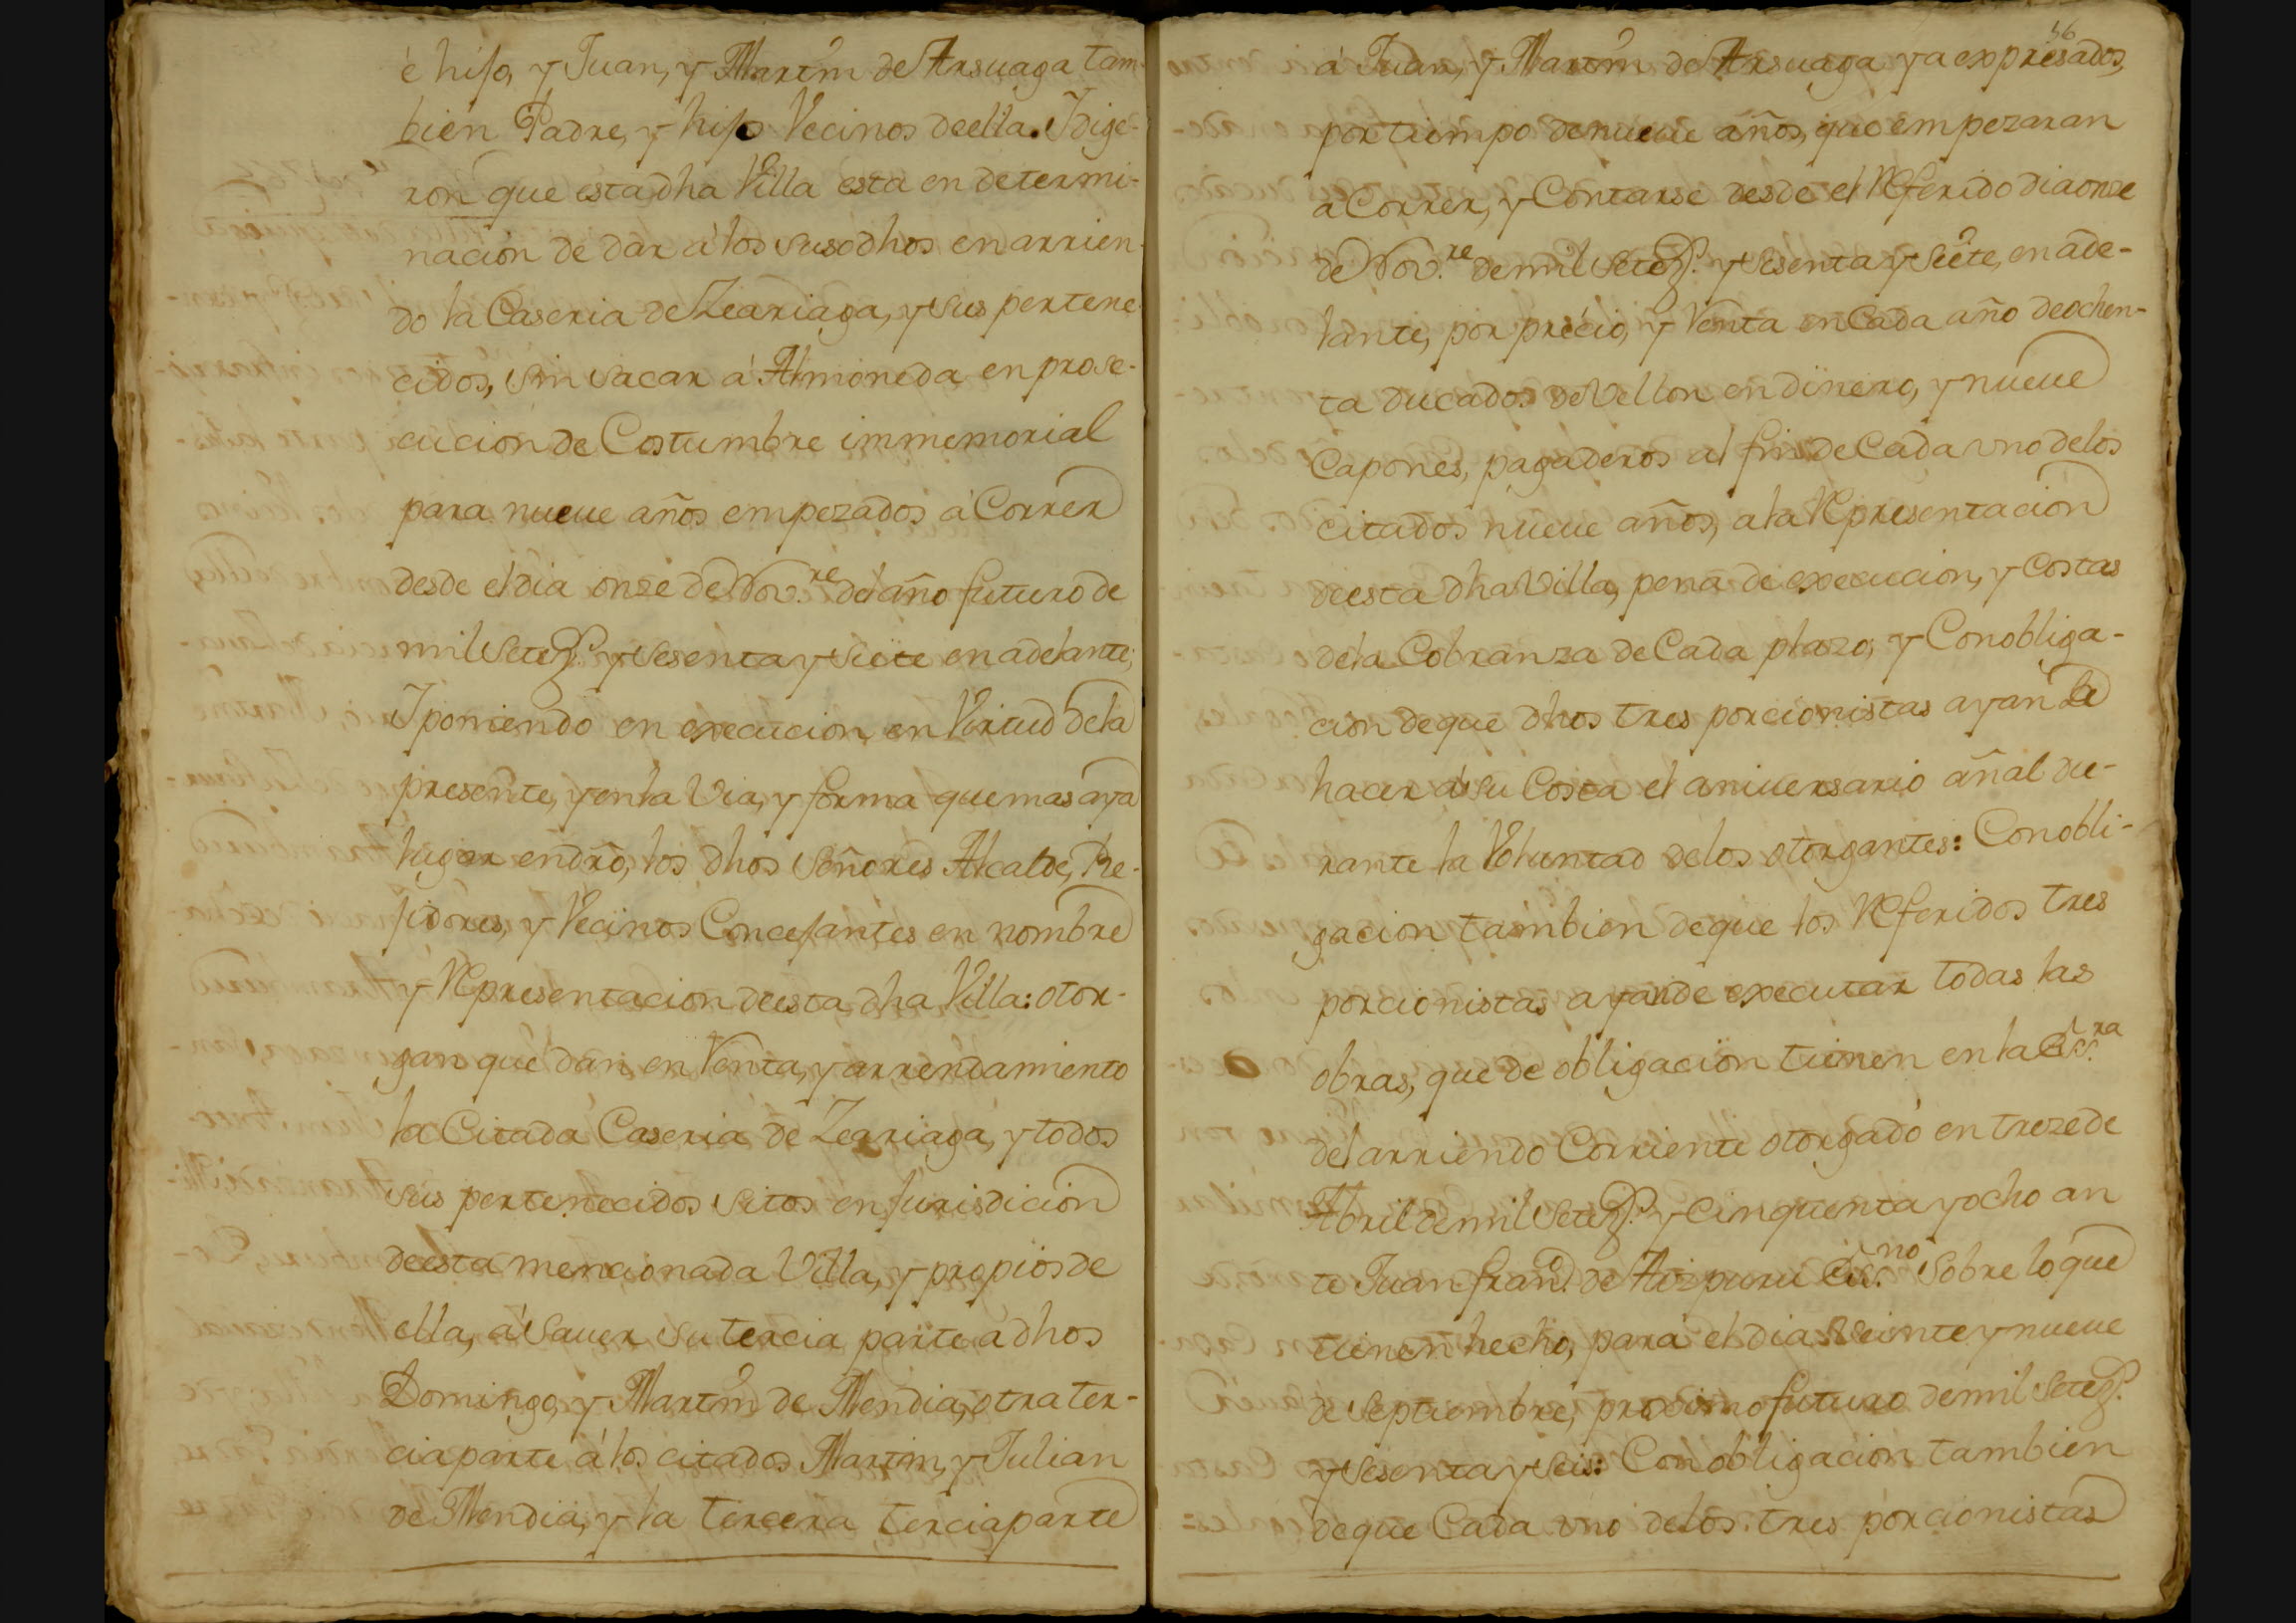 è hijo, y Juan, y Martin de Arsuaga tam-
bien Padre, y hijo Vecinos deella. Y dige-
ron que esta dha Villa esta en determi-
nacion de dar à los susodhos en arrien-
do la Caseria de Zeariaga, y sus pertene-
cidos, sin sacar à Almoneda, en prose-
cucion de Costumbre immemorial
para nueue años empezados à Correr
desde el dia onze de Nov.re del año futuro de
mil setez.s y sesenta y siete en adelante;
Y poniendo en execucion, en Virtud de la
presente, y en la Via, y forma que mas aya
lugar en dro, los dhos Señores Alcalde, Re-
jidores, y Vecinos Concejantes en nombre
y Representacion deesta dha Villa: otor-
gan que dan en Renta, y arrendamiento
la Citada Caseria de Zeariaga, y todos
sus pertenecidos sitos en jurisdicion
deesta mencionada Villa, y propios de
ella, à sauer su tercia parte à dhos
Domingo, y Martin de Mendia, otra ter-
cia parte à los citados Martin, y Julian
de Mendia, y la tercera tercia parte
56
à Juan, y Martin de Arsuaga ya expresados,
por tiempo de nueue años, que empezaran
à Correr, y Contarse desde el Referido dia onze
de Nov.re de mil setez.s y sesenta y siete, en ade-
lante, por precio, y Renta en Cada año de ochen-
ta ducados de Vellon en dinero, y nueue
Capones, pagaderos al fin de Cada vno delos
citados nueue años, a la Representacion
deesta dha Villa, pena de execucion, y costas
dela Cobranza de Cada plazo, y Con obliga-
cion de que dhos tres porcionistas ayan de
hacer à su Costa el aniuersario añal du-
rante la Voluntad delos otorgantes: Con obli-
gacion tambien de que los Referidos tres
porcionistas ayan de executar todas las
obras, que de obligacion tienen en la Ess.ra
del arriendo Corriente otorgado en treze de
Abril de mil setez.s y cinquenta y ocho an
te Juan Fran.co de Aizpuru Ess.no sobre lo que
tienen hecho, para el dia veinte y nueue
de Septiembre, proximo futuro de mil setez.s
y sesenta y seis: Con obligacion tambien
de que Cada vno delos tres porcionistas